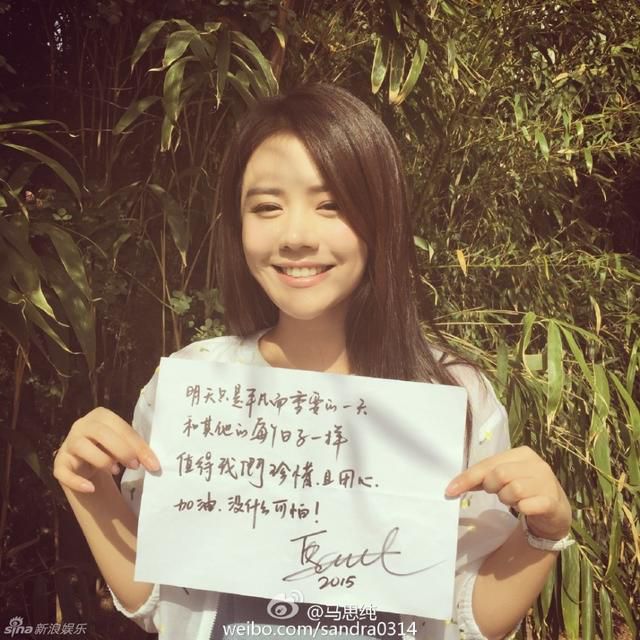 明天只是平凡而重要的一天
和其他的每个日子一样
值得我们珍惜.且用心.
加油.没什么可怕!
2015
sina新浪娱乐
@马思纯
weibo.com/sandra0314